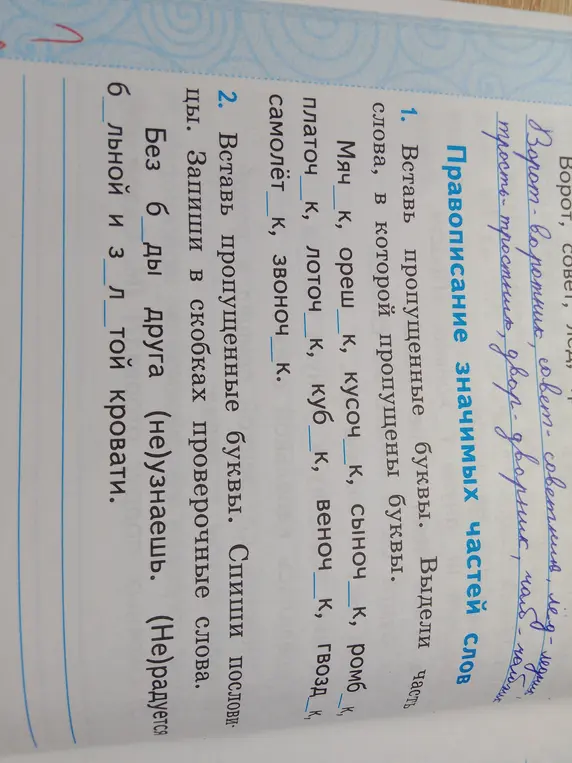 Ворот, совет, лёд,
Ворот-воротник, совет-советник, лёд-ледник,
трость-тростник, двор-дворник, чаб-чабан
Правописание значимых частей слов
1. Вставь пропущенные буквы. Выдели часть
слова, в которой пропущены буквы.
Мяч_к, ореш_к, кусоч_к, сыноч_к, ромб_к,
платоч_к, лоточ_к, куб_к, веноч_к, гвозд_к,
самолёт_к, звоноч_к.
2. Вставь пропущенные буквы. Спиши послови-
цы. Запиши в скобках проверочные слова.
Без б_ды друга (не)узнаешь. (Не)радуется
б_льной и з_л_той кровати.